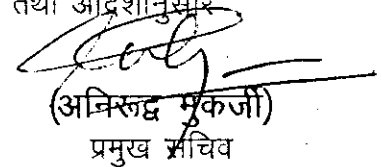 तथा आदेशानुसार
(अनिरूद्ध मुकर्जी)
प्रमुख सचिव